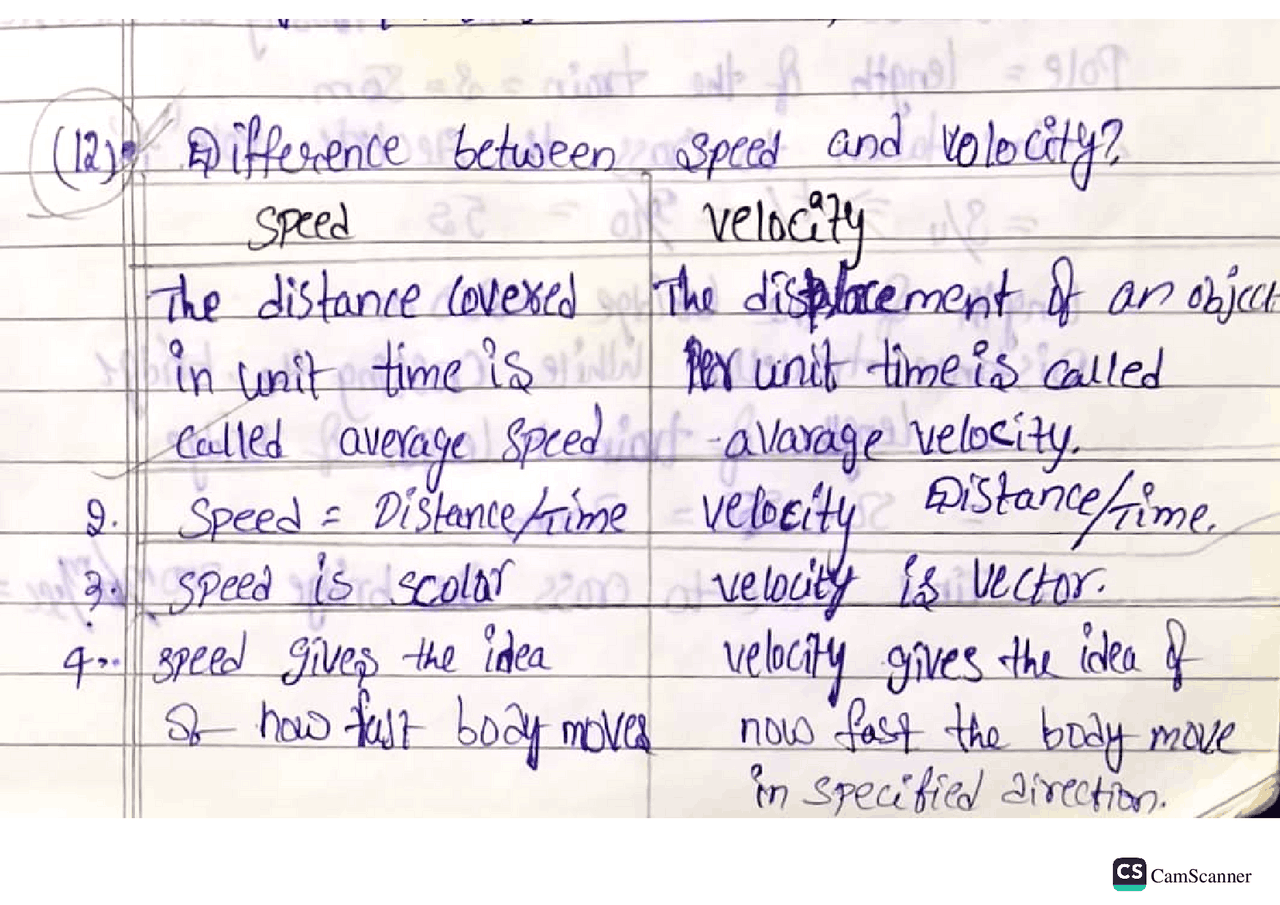 (12) Difference between speed and volocity?
speed velocity
The distance covered The displacement of an object
in unit time is Per unit time is called
called average speed avarage velocity.
2. Speed = Distance/Time velocity Distance/Time.
3. speed is scolar velocity is vector.
4. speed gives the idea velocity gives the idea of
of how fast body moves now fast the body move
in specified direction.
CS CamScanner